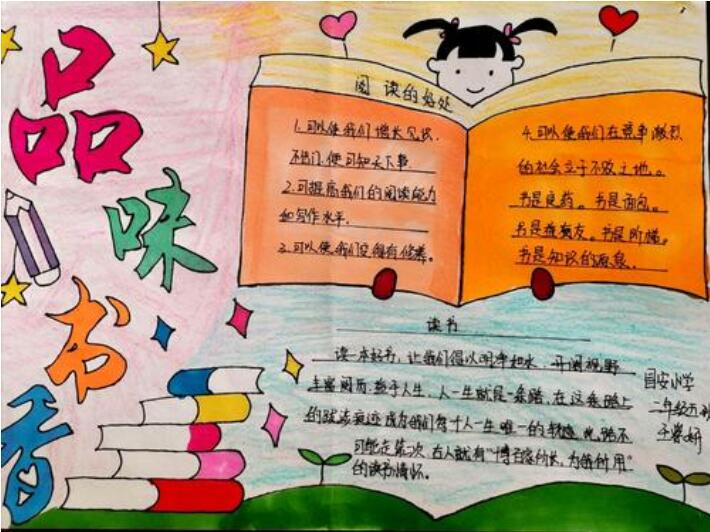 品
味
书
香
阅读的好处
1.可以使我们增长见识.
不出门,便可知天下事
2.可提高我们的阅读能力
和写作水平.
3.可以使我们变得有修养。
4.可以使我们在竞争激烈
的社会立于不败之地。
书是良药。书是面包。
书是 友。书是阶梯。
书是知识的源泉.
读书
读一本好书,让我们得以明净如水,开阔视野
丰富阅历,益于人生,人一生就是一条路,在这条路上
的跋涉痕迹成为我们每个人一生唯一的轨迹,此路不
可能走第二次,古人就有"博百家所长,为我所用"
的读书情怀。
国安小学
二年级五班